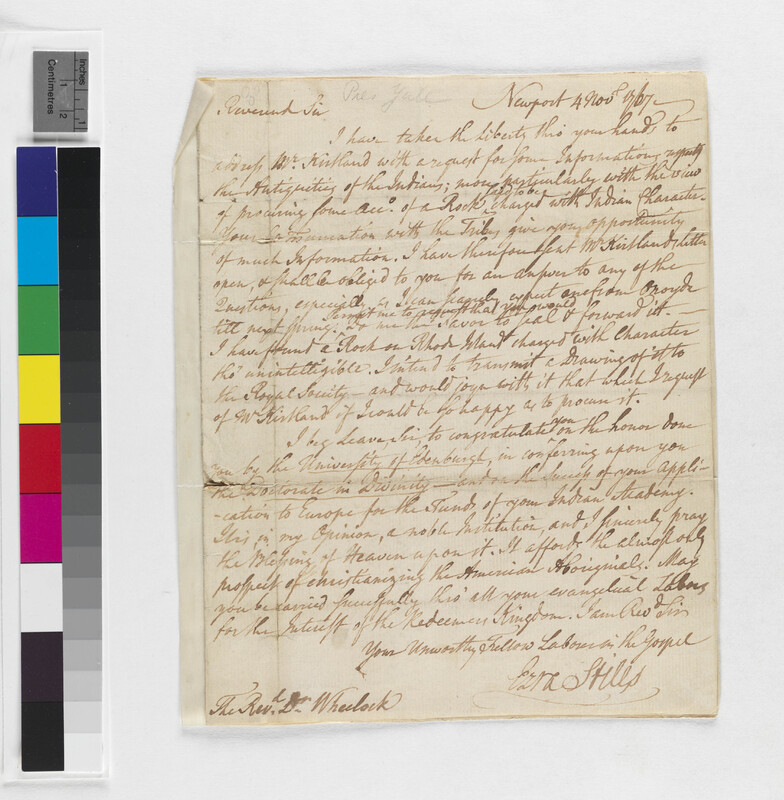 Inches
1
2
Centimetres
Pres Yale
Newport 4 Novr 1767.
Reverend Sir
I have taken the Liberty thro your hands to
address Mr. Kirtland with a request for some Informations respectg
the Antiquities of the Indians; more particularly with the view
of procuring some acco. of a Rock said to be charged with Indian Character.
Your Communication with the Tribes give you opportunity
of much Information. I have therefore sent Mr Kirtlands Letter
open, & shall be obliged to you for an answer to any of the
Questions, especially as I can scarcely expect one from Onoyde
till next Spring. Permit me to request that you would Do me the Favor to seal & forward it.—
I have found a Rock on Rhode Island charged with Character
tho' unintelligible. I intend to transmit a Drawing of it to
the Royal Society — and would joyn with it that which I request
of Mr Kirtland if I could be so happy as to procure it.
I beg Leave Sir, to congratulate you on the honor done
you by the University of Edenburgh, in conferring upon you
the Doctorate in Divinity — and on the Success of your Appli-
-cation to Europe for the Funds of your Indian Academy.
It is in my Opinion, a noble Institution, and I sincerely pray
the Blessing of Heaven upon it. It affords the almost only
prospect of christianizing the American Aboriginals. May
you be carried successfully thro' all your evangelical Labors
for the Interest of the Redeemers Kingdom. I am Revd Sir
Your Unworthy Fellow Labourer in the Gospel
Ezra Stiles
The Revd. Dr Wheelock